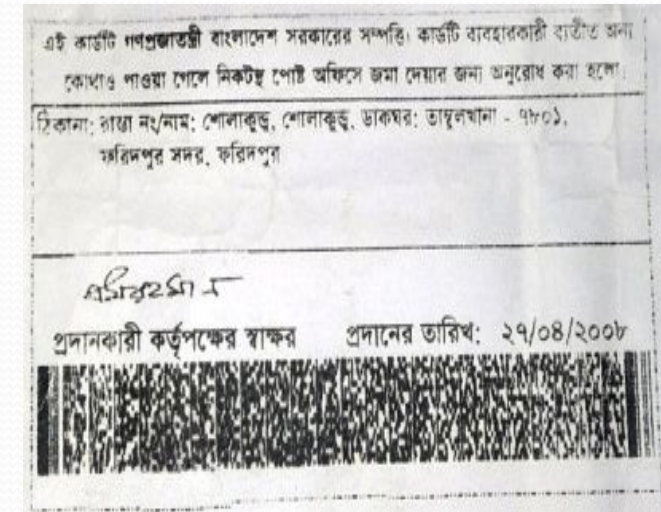 এই কার্ডটি গণপ্রজাতন্ত্রী বাংলাদেশ সরকারের সম্পত্তি। কার্ডটি ব্যবহারকারী ব্যতীত অন্য
কোথাও পাওয়া গেলে নিকটস্থ পোষ্ট অফিসে জমা দেয়ার জন্য অনুরোধ করা হলো।
ঠিকানা: রাস্তা নং/নাম: শোলাকুন্ডু, শোলাকুন্ডু, ডাকঘর: তাম্বুলখানা - ৭৮০১,
ফরিদপুর সদর, ফরিদপুর
প্রদানকারী কর্তৃপক্ষের স্বাক্ষর প্রদানের তারিখ: ২৭/০৪/২০০৮